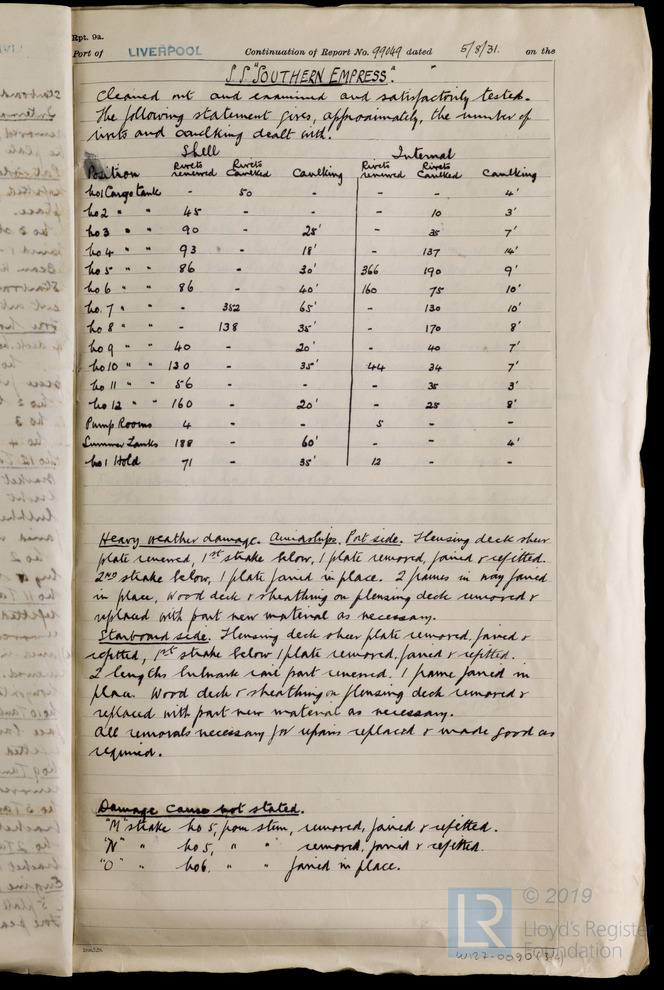 Rpt. 9a.
Port of LIVERPOOL Continuation of Report No. 99049 dated 5/8/31. on the
S.S. "SOUTHERN EMPRESS".
Cleaned out and examined and satisfactorily tested.
The following statement gives, approximately, the number of
rivets and caulking dealt with.
Shell Internal
Position Rivets renewed Rivets Caulked Caulking Rivets renewed Rivets Caulked Caulking
No 1 Cargo tank - 50 - - - 4'
No 2 " " 45 - - - 10 3'
No 3 " " 90 - 25' - 35 7'
No 4 " " 93 - 18' - 137 14'
No 5 " " 86 - 30' 366 190 9'
No 6 " " 86 - 40' 160 75 10'
No. 7 " " - 352 65' - 130 10'
No 8 " " - 138 35' - 170 8'
No 9 " " 40 - 20' - 40 7'
No 10 " " 130 - 35' 44 34 7'
No 11 " " 56 - - - 35 3'
No 12 " " 160 - 20' - 25 8'
Pump Rooms 4 - - 5 - -
Summer Tanks 188 - 60' - - 4'
No 1 Hold 71 - 35' 12 - -
Heavy weather damage. Amidships. Port side. Flensing deck sheer
plate renewed, 1st strake below, 1 plate removed, faired & refitted.
2nd strake below, 1 plate faired in place. 2 frames in way faired
in place, wood deck & sheathing on flensing deck removed &
replaced with part new material as necessary.
Starboard side. Flensing deck sheer plate removed, faired &
refitted, 1st strake below 1 plate removed, faired & refitted.
2 lengths bulwark rail part renewed. 1 frame faired in
place. Wood deck & sheathing on flensing deck removed &
replaced with part new material as necessary.
All removals necessary for repairs replaced & made good as
required.
Damage cause not stated.
"M" strake No 5, from stem, removed, faired & refitted.
"N" " No 5, " " removed, faired & refitted.
"O" " No 6, " " faired in place.
LR
© 2019
Lloyd's Register
Foundation
W127-0090 (3/4)